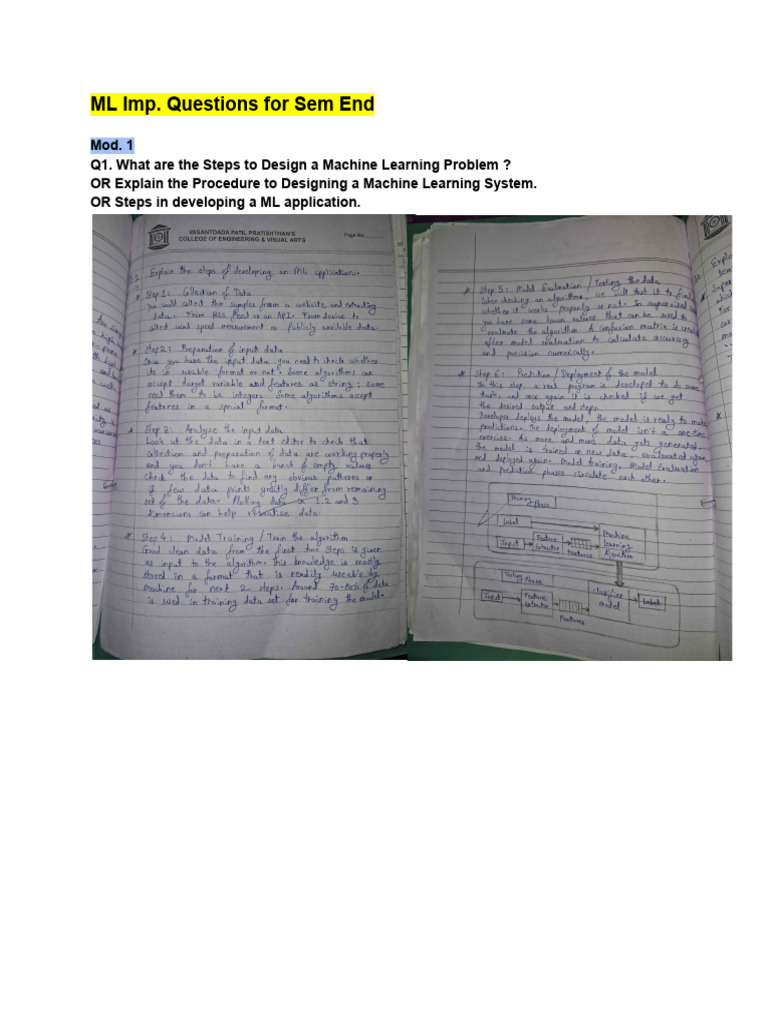 ML Imp. Questions for Sem End
Mod. 1
Q1. What are the Steps to Design a Machine Learning Problem ?
OR Explain the Procedure to Designing a Machine Learning System.
OR Steps in developing a ML application.
VASANTDADA PATIL PRATISHTHAN'S
COLLEGE OF ENGINEERING & VISUAL ARTS
Page No.
Explain the steps of developing an ML application.
Step 1: Collection of Data
You will collect the samples from a website and extracting
data. From RSS feed or an API. From device to
collect wind speed measurement or publicly available data.
Step 2: Preparation of input data
Once you have the input data, you need to check whether
its in useable format or not. Some algorithms can
accept target variable and features as string; some
need them to be integers. Some algorithms accept
features in a special format.
Step 3: Analyse the input data
Look at the data in a text editor to check that
collection and preparation of data are working properly
and you don't have a bunch of empty values
check the data to find any obvious patterns or
if few data points greatly differ from remaining
set of the data. Plotting data in 1, 2 and 3
dimensions can help visualise data.
Step 4: Model Training / Train the algorithm
Good clean data from the first two steps is given
as input to the algorithm. This knowledge is mostly
stored in a format that is readily useable by
machine for next 2 steps. Around 70-80% of data
is used in training data set for training the model.
Step 5: Model Evaluation / Testing the data
When checking an algorithm, we will test it to find
whether it works properly or not. In supervised
you have some known values that can be used to
evaluate the algorithm. A confusion matrix is
after model evaluation to calculate accuracy
and precision numerically.
Step 6: Prediction / Deployment of the model
In this step, a real program is developed to do some
task, and once again it is checked if we get
the desired output and steps.
Developer deploys the model, the model is ready to make
predictions. The deployment of model isn't a one-time
exercise. As more and more data gets generated
the model is trained on new data, evaluated again
and deployed again. Model training, Model Evaluation
and prediction phases circulate each other.
Training Phase
Label
Input
Feature extractor
Features
Machine Learning Algorithm
Testing Phase
Input
Feature extractor
Features
classifier model
Label